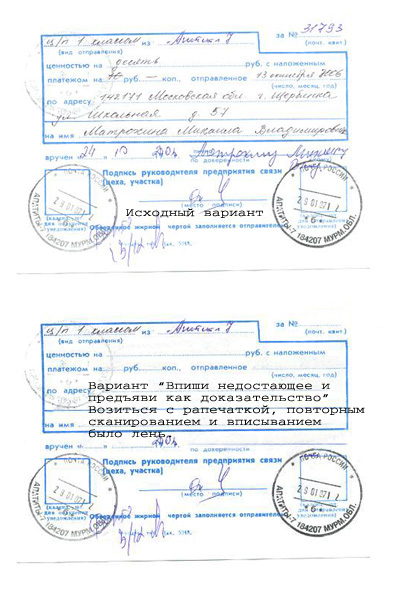 за № 31793
ц/п 1 классом из Апатиты 7
(вид отправления) (почт. квит.)
ценностью на десять руб. с наложенным
платежом на руб. — коп., отправленное 13 октября
(число, месяц, год)
по адресу 142171 Московская обл г. Щербинка
ул. Школьная д. 57
на имя Матрохина Михаила Владимировича
вручен 24
по доверенности
Подпись руководителя предприятия связи
(цеха, участка)
ПОЧТА РОССИИ
Исходный вариант
(место подписи)
АПАТИТЫ-7 184207 МУРМ.ОБЛ.
Обведенное жирной чертой заполняется отправителем
за №
ц/п 1 классом из Апатиты 7
(вид отправления) (почт. квит.)
ценностью на руб. с наложенным
платежом на руб. коп., отправленное
(число, месяц, год)
по адресу
Вариант “Впиши недостающее и
предъяви как доказательство”
Возиться с рапечаткой, повторным
сканированием и вписыванием
было лень.
на имя
вручен
по доверенности
Подпись руководителя предприятия связи
(цеха, участка)
ПОЧТА РОССИИ
(место подписи)
АПАТИТЫ-7 184207 МУРМ.ОБЛ.
Обведенное жирной чертой заполняется отправителем